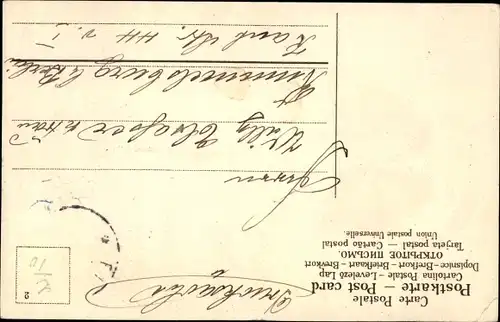 Carte Postale
Postkarte — Post card
Cartolina Postale – Levelező Lap
Dopisnice – Brefkort – Briefkaart – Brevkort
ОТКРЫТОЕ ПИСЬМО.
Targeta postal — Cartão postal
Union postale Universelle.
Drucksache
Herrn
Willy
Rummelsburg b. Berlin
Kant Str. 44 v. I
2